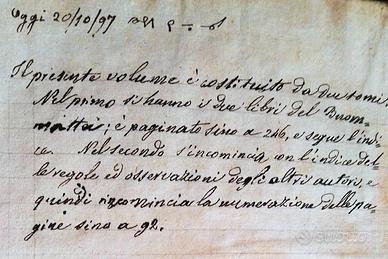 Oggi 20/10/97
Il presente volume è costituito da due tomi
Nel primo si hanno i due libri del Buom-
mattei; è paginato sino a 246, e segue l'indi-
ce. Nel secondo s'incomincia con l'indice del-
le regole ed osservazioni degli altri autori, e
quindi rincomincia la numerazione delle pa-
gine sino a 92.
subito